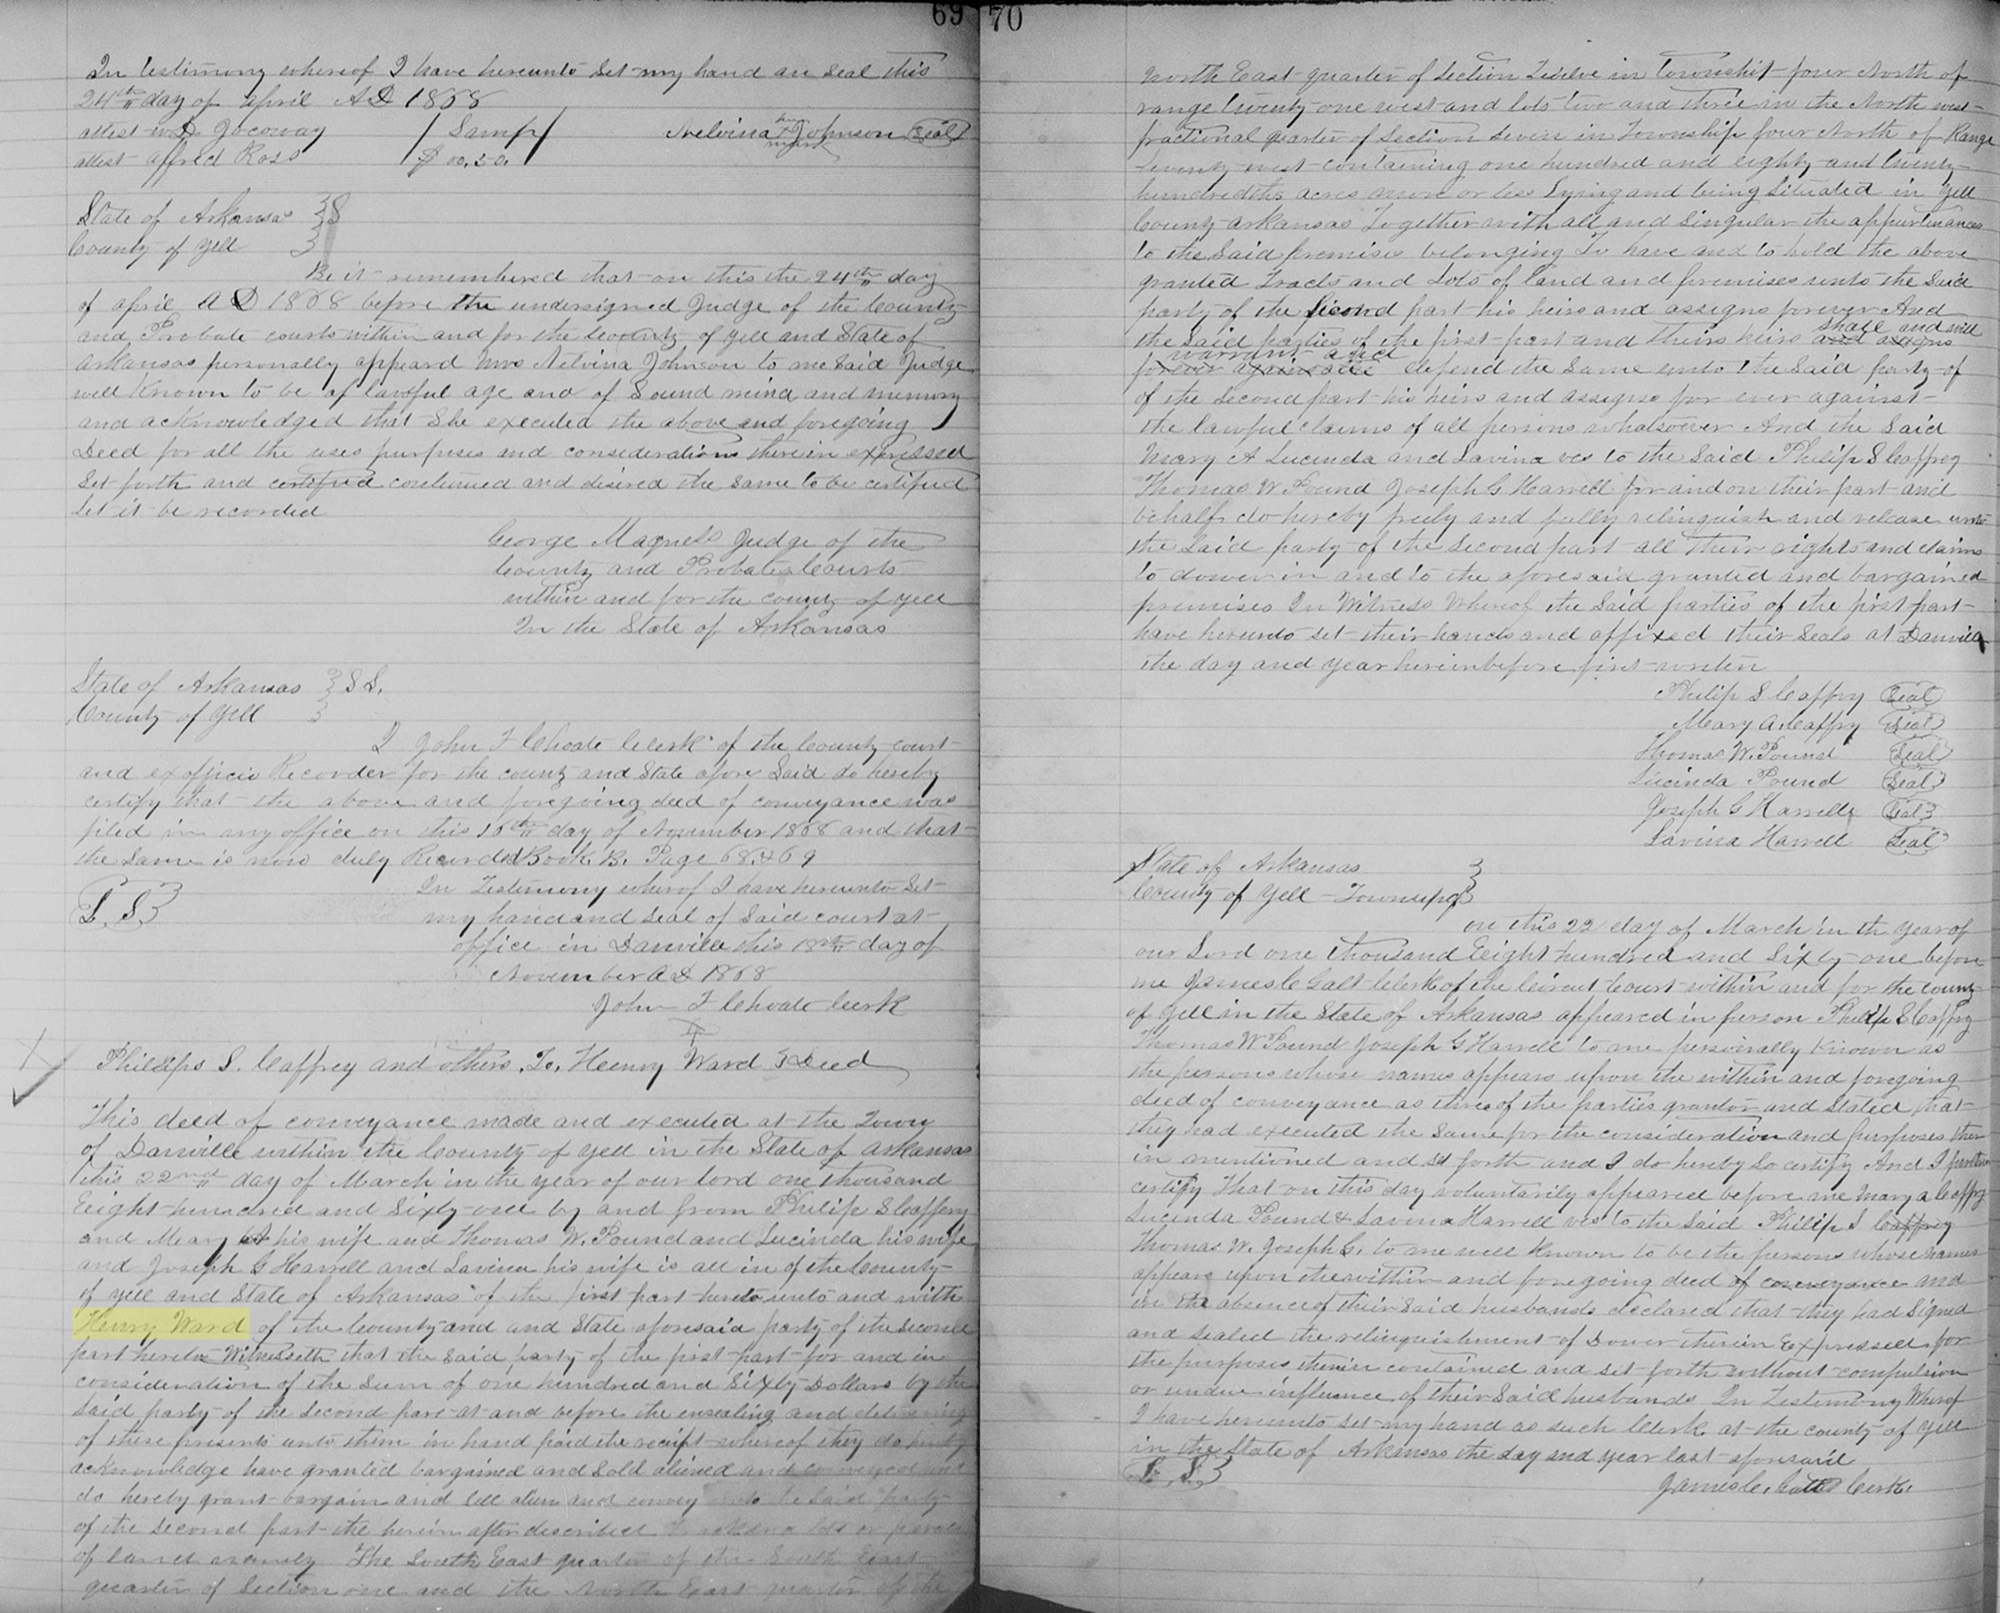 69
In testimony whereof I have hereunto set my hand an seal this
24th day of april AD 1868
attest W D Jocoway
attest alfred Ross
Stamp
$ 00.50.
Nelvina her mark Johnson Seal
State of Arkansas } S
County of Yell }
Be it remembered that on this the 24th day
of april AD 1868 before the undersigned Judge of the County
and Probate courts within and for the County of Yell and State of
arkansas personally appeard Mrs Nelvina Johnson to me said Judge
well Known to be of lawful age and of Sound mind and memory
and acknowledged that She executed the above and foregoing
Deed for all the uses purposes and considerations therein expressed
Set forth and certifyed contained and desired the same to be certified
Let it be recorded
George Magness Judge of the
County and Probate Courts
within and for the county of Yell
In the State of Arkansas
State of Arkansas } S S.
County of Yell }
I John F Choate Clerk of the County court
and exofficio Recorder for the county and State afore Said do hereby
certify that the above and foregoing deed of conveyance was
filed in my office on this 16th day of November 1868 and that
the same is now duly Recorded Book B. Page 68 & 69
L. S
In Testimony wherof I have hereunto Set
my hand and seal of Said court at
office in Danville this 18th day of
November AD 1868
John F Choate Clerk
Phillips S. Caffrey and others, To, Heenry Ward } Deed
This deed of conveyance made and executed at the Town
of Danville within the County of Yell in the State of arkansas
this 22nd day of March in the year of our lord one thousand
Eight hundred and Sixty one by and from Philip S Caffery
and Mary A his wife and Thomas W. Pound and Lucinda his wife
and Joseph G Harrell and Lavina his wife is all in of the County
of Yell and State of Arkansas of the first part hereto unto and with
Henry Ward of the County and and State aforesaid party of the second
part hereto Witnesseth that the said party of the first part for and in
consideration of the sum of one hundred and Sixty Dollars by the
said party of the second part at and before the ensealing and delivering
of these presents unto them in hand paid the receipt whereof they do hereby
acknowledge have granted bargained and Sold aliened and conveyed and
do hereby grant bargain and sell alien and convey unto the said party
of the second part the herein after described lots or parcels
of land namely The South East quarter of the South East
quarter of Section one and the North East quarter of the
70
North East quarter of Section Twelve in Township four North of
range twenty one west and lots two and three in the North west
fractional quarter of Section Seven in Township four North of Range
twenty west containing one hundred and eighty and twenty
hundredths acres more or less Lying and being Situated in Yell
County arkansas Together with all and singular the appurtenances
to the Said premises belonging To have and to hold the above
granted Tracts and Lots of land and premises unto the Said
party of the second part his heirs and assigns forever And
the said parties of the first part and theirs heirs and assigns shall and will
forever against all warrant and defend the Same unto the Said party of
of the second part his heirs and assigns for ever against
the lawful claims of all persons whatsoever And the Said
Mary A Lucinda and Lavina ves to the Said Philip S Caffrey
Thomas W Pound Joseph G Harrell for and on their part and
behalf do hereby freely and fully relinquish and release unto
the said party of the second part all their rights and claims
to dower in and to the aforesaid granted and bargained
premises In Witness Whereof the Said parties of the first part
have hereunto set their hands and affixed their Seals at Danville
the day and year hereinbefore first writen
Philip S Caffry Seal
Mary A. Caffry Seal
Thomas W. Pound Seal
Lucinda Pound Seal
Joseph G Harrelle Seal
Lavina Harrell Seal
State of Arkansas }
County of Yell - Township }
on this 22 day of March in th year of
our Lord one thousand Eeight hundred and Sixty one before
me James C Galt Clerk of the Circuit Court within and for the County
of Yell in the State of Arkansas appeared in person Philip S Caffry
Thomas W Pound Joseph G Harrell to me personally Known as
the persons whose names appears upon the within and foregoing
deed of conveyance as three of the parties grantor and Stated that
they had executed the Same for the consideration and purposes ther
in mentioned and set forth and I do hereby so certify And I further
certify That on this day voluntarily appeared before me Mary A Caffry
Lucinda Pound & Lavina Harrell ves to the Said Philip S Caffrey
Thomas W. Joseph G. to me well known to be the persons whose names
appears upon the within and foregoing deed of conveyance and
in tha absence of their Said husbands declared that they had Signed
and sealed the relinquishment of Dower therein Expressed for
the purposes therein contained and set forth without compulsion
or undue influence of their Said husbands In Testimony Wherof
I have hereunto set my hand as such Clerk at the county of Yell
in the State of Arkansas the day and year last aforesaid
L. S
James C. Galt Clerk.